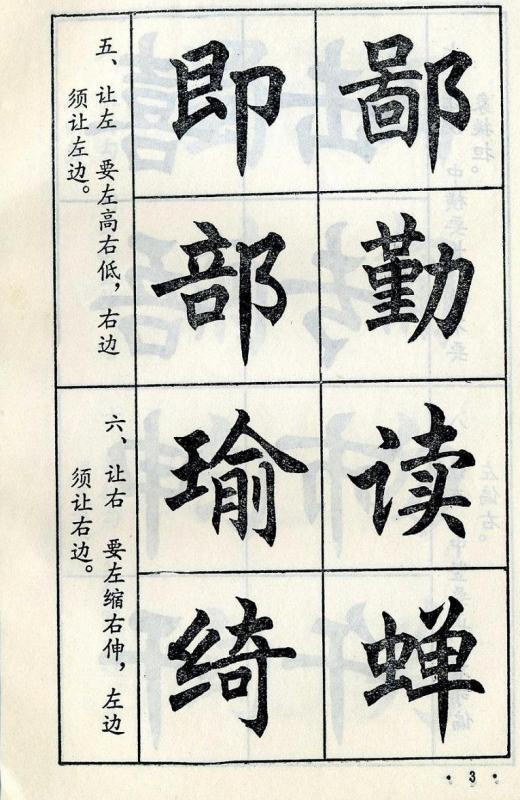 五、让左 要左高右低，右边
须让左边。
即 鄙
部 勤
六、让右 要左缩右伸，左边
须让右边。
瑜 读
绮 蝉
· 3 ·